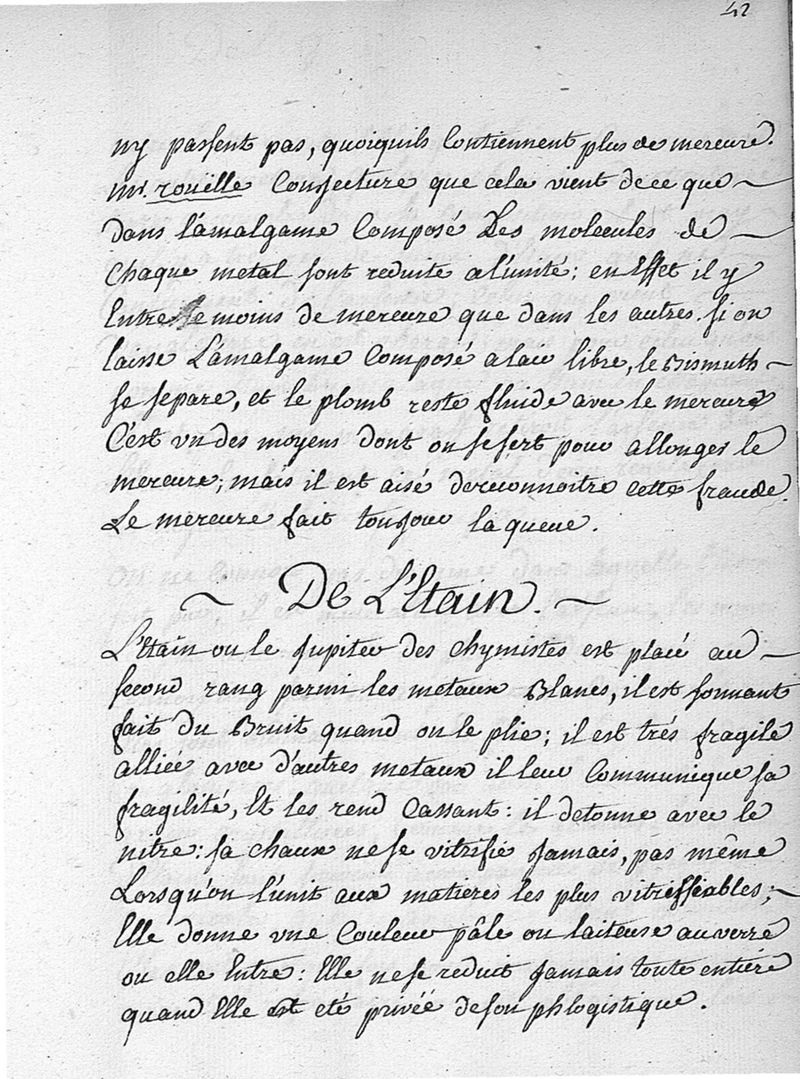 42
ny passent pas, quoiquils Contiennent plus de mercure.
mr. rouelle Conjecture que cela vient dece que
dans l'amalgame Composé Les molecules de
Chaque metal sont reduite al'unité; en Effet il y
Entre moins de mercure que dans les autres. si on
laisse L'amalgame Composé alair libre, le Bismuth
se separe, et le plomb reste fluide avec le mercure
C'est vn des moyens dont on se sert pour allonger le
mercure; mais il est aisé dereconnoitre cette fraude.
Le mercure fait toujour la queue.
De L'Etain.
L'Etain ou le Jupiter des chymistes est placé au
second rang parmi les metaux Blancs, il est sonnant
fait du Bruit quand on le plie; il est trés fragile
alliée avec d'autres metaux il leur Communique sa
fragilité, Et les rend Cassant: il detonne avec le
nitre: sa chaux nese vitrifie Jamais, pas même
Lorsqu'on l'unit aux matieres les plus vitreffiables;
Elle donne vne Couleur pâle ou laiteuse au verre
ou elle Entre: Elle nese reduit Jamais toute entiére
quand Elle est eté privéé deson phlogistique.